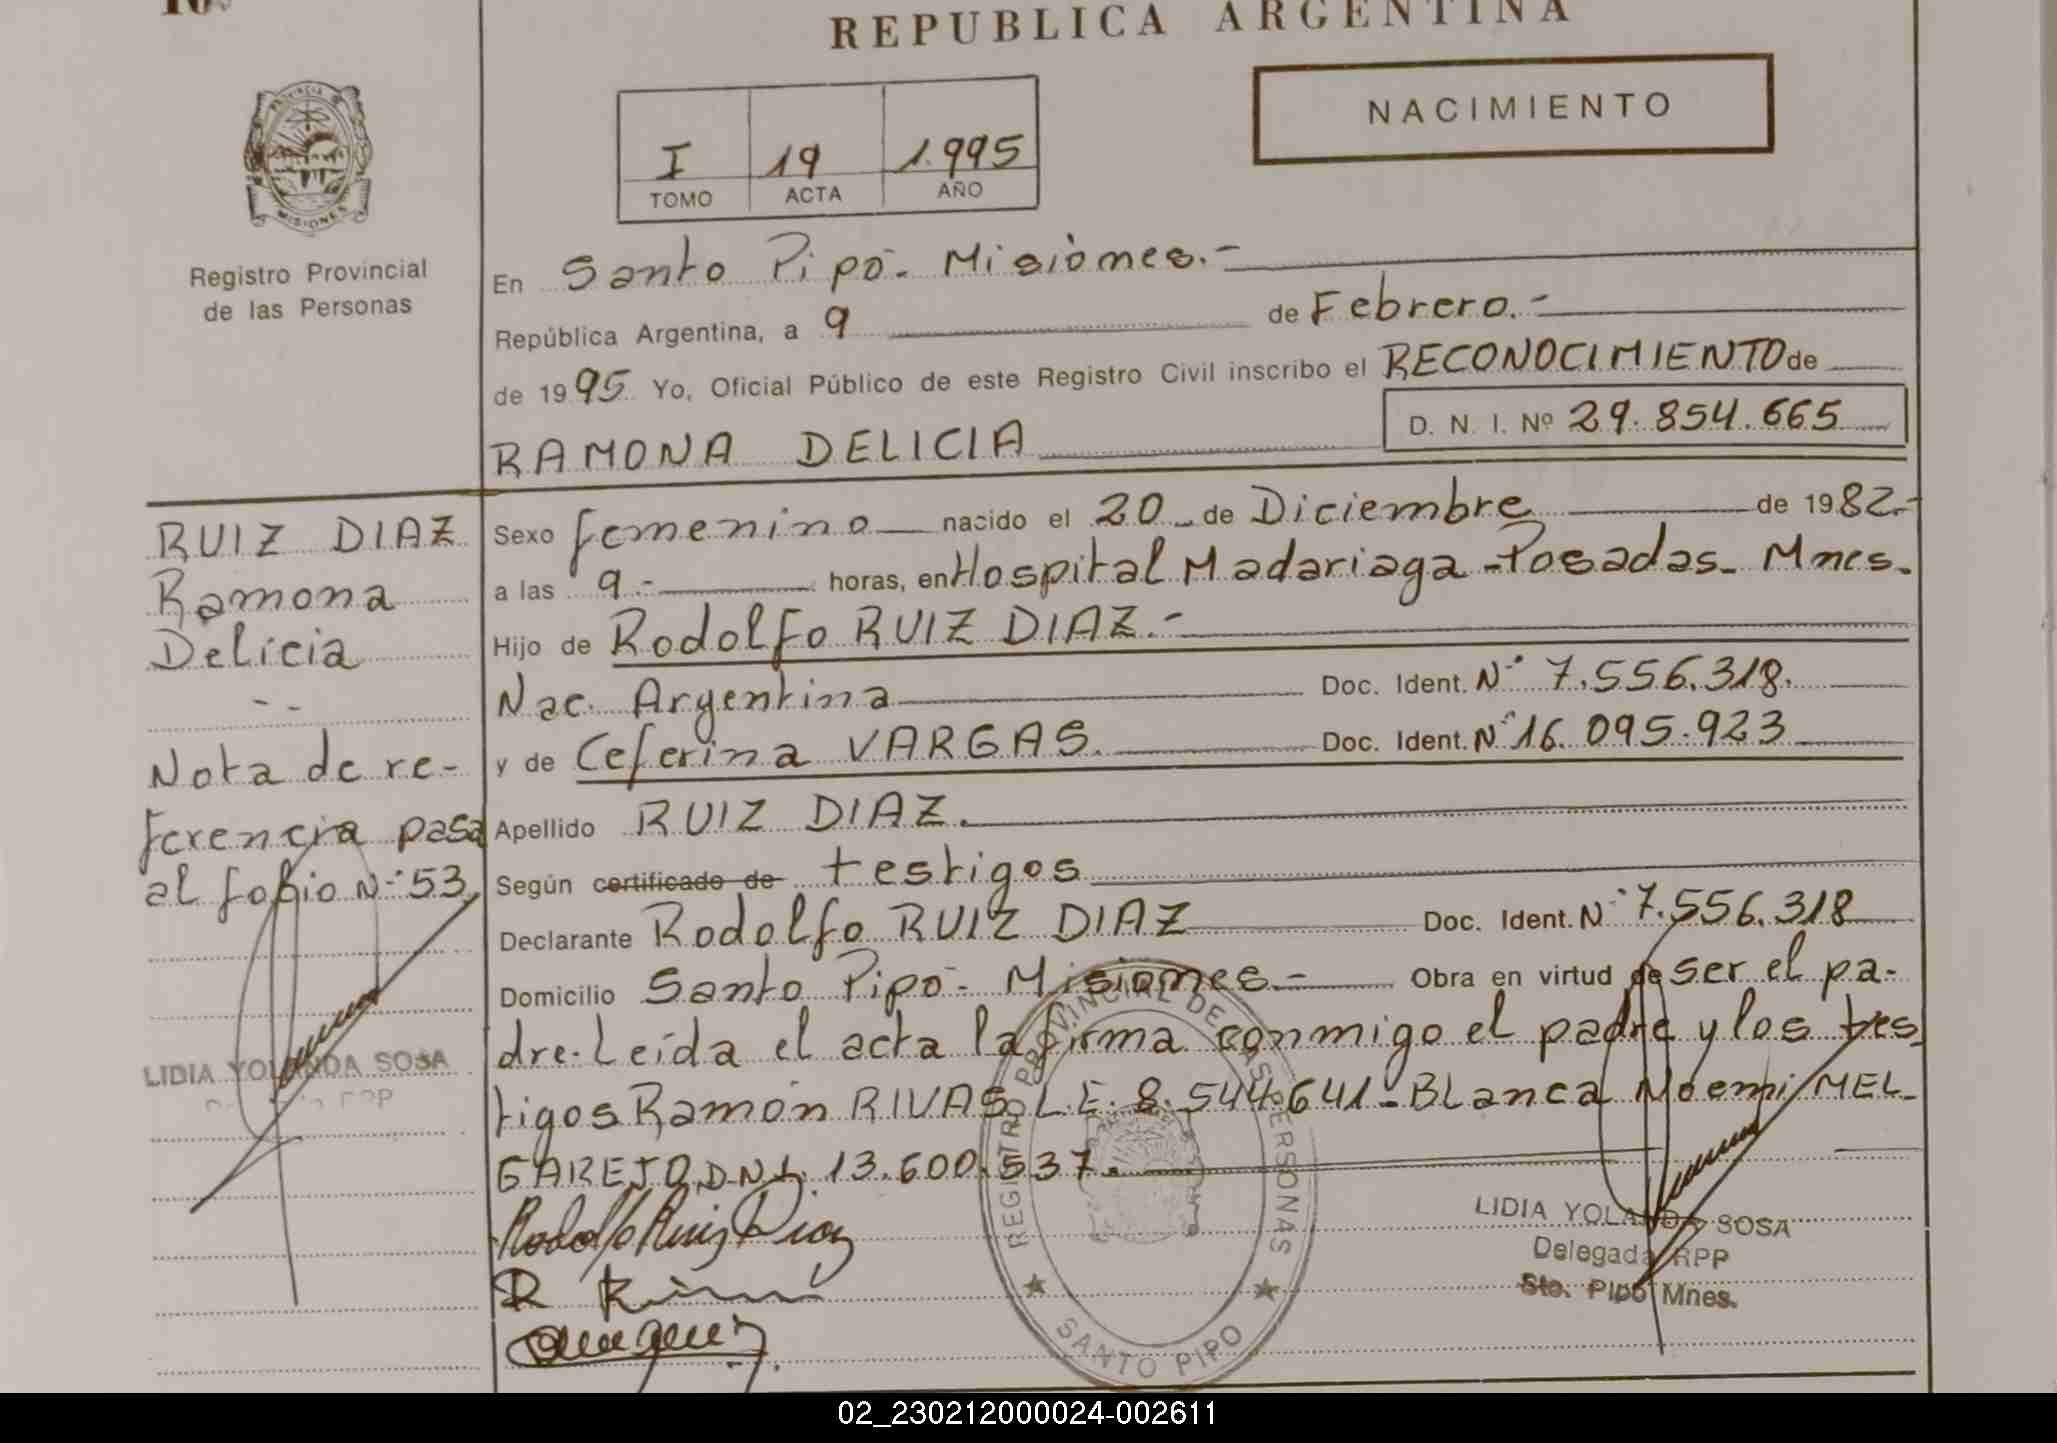 REPUBLICA ARGENTINA
NACIMIENTO
I 19 1.995
TOMO ACTA AÑO
PROVINCIA DE
MISIONES
Registro Provincial
de las Personas
En Santo Pipó- Misiones.-
República Argentina, a 9 de Febrero.-
de 1995 Yo, Oficial Público de este Registro Civil inscribo el RECONOCIMIENTO de
RAMONA DELICIA D. N. I. Nº 29.854.665
RUIZ DIAZ
Ramona
Delicia
--
Nota de re-
ferencia pasa
al folio N° 53
LIDIA YOLANDA SOSA
RPP
Sexo femenino nacido el 20 de Diciembre de 1982.-
a las 9.- horas, en Hospital Madariaga - Posadas- Mnes.
Hijo de Rodolfo RUIZ DIAZ.-
Nac. Argentina Doc. Ident. N° 7.556.318.
y de Ceferina VARGAS. Doc. Ident. N° 16.095.923
Apellido RUIZ DIAZ.
Según certificado de testigos
Declarante Rodolfo RUIZ DIAZ Doc. Ident. N° 7.556.318
Domicilio Santo Pipó- Misiones.- Obra en virtud de ser el pa-
dre. Leída el acta la firma conmigo el padre y los tes
tigos Ramón RIVAS L.E. 8.544.641- Blanca Noemi MEL-
GAREJO D.N.I. 13.600.537.
Rodolfo Ruiz Diaz
REGISTRO PROVINCIAL DE LAS PERSONAS
SANTO PIPO
LIDIA YOLANDA SOSA
Delegada RPP
Sto. Pipó Mnes.
02_230212000024-002611